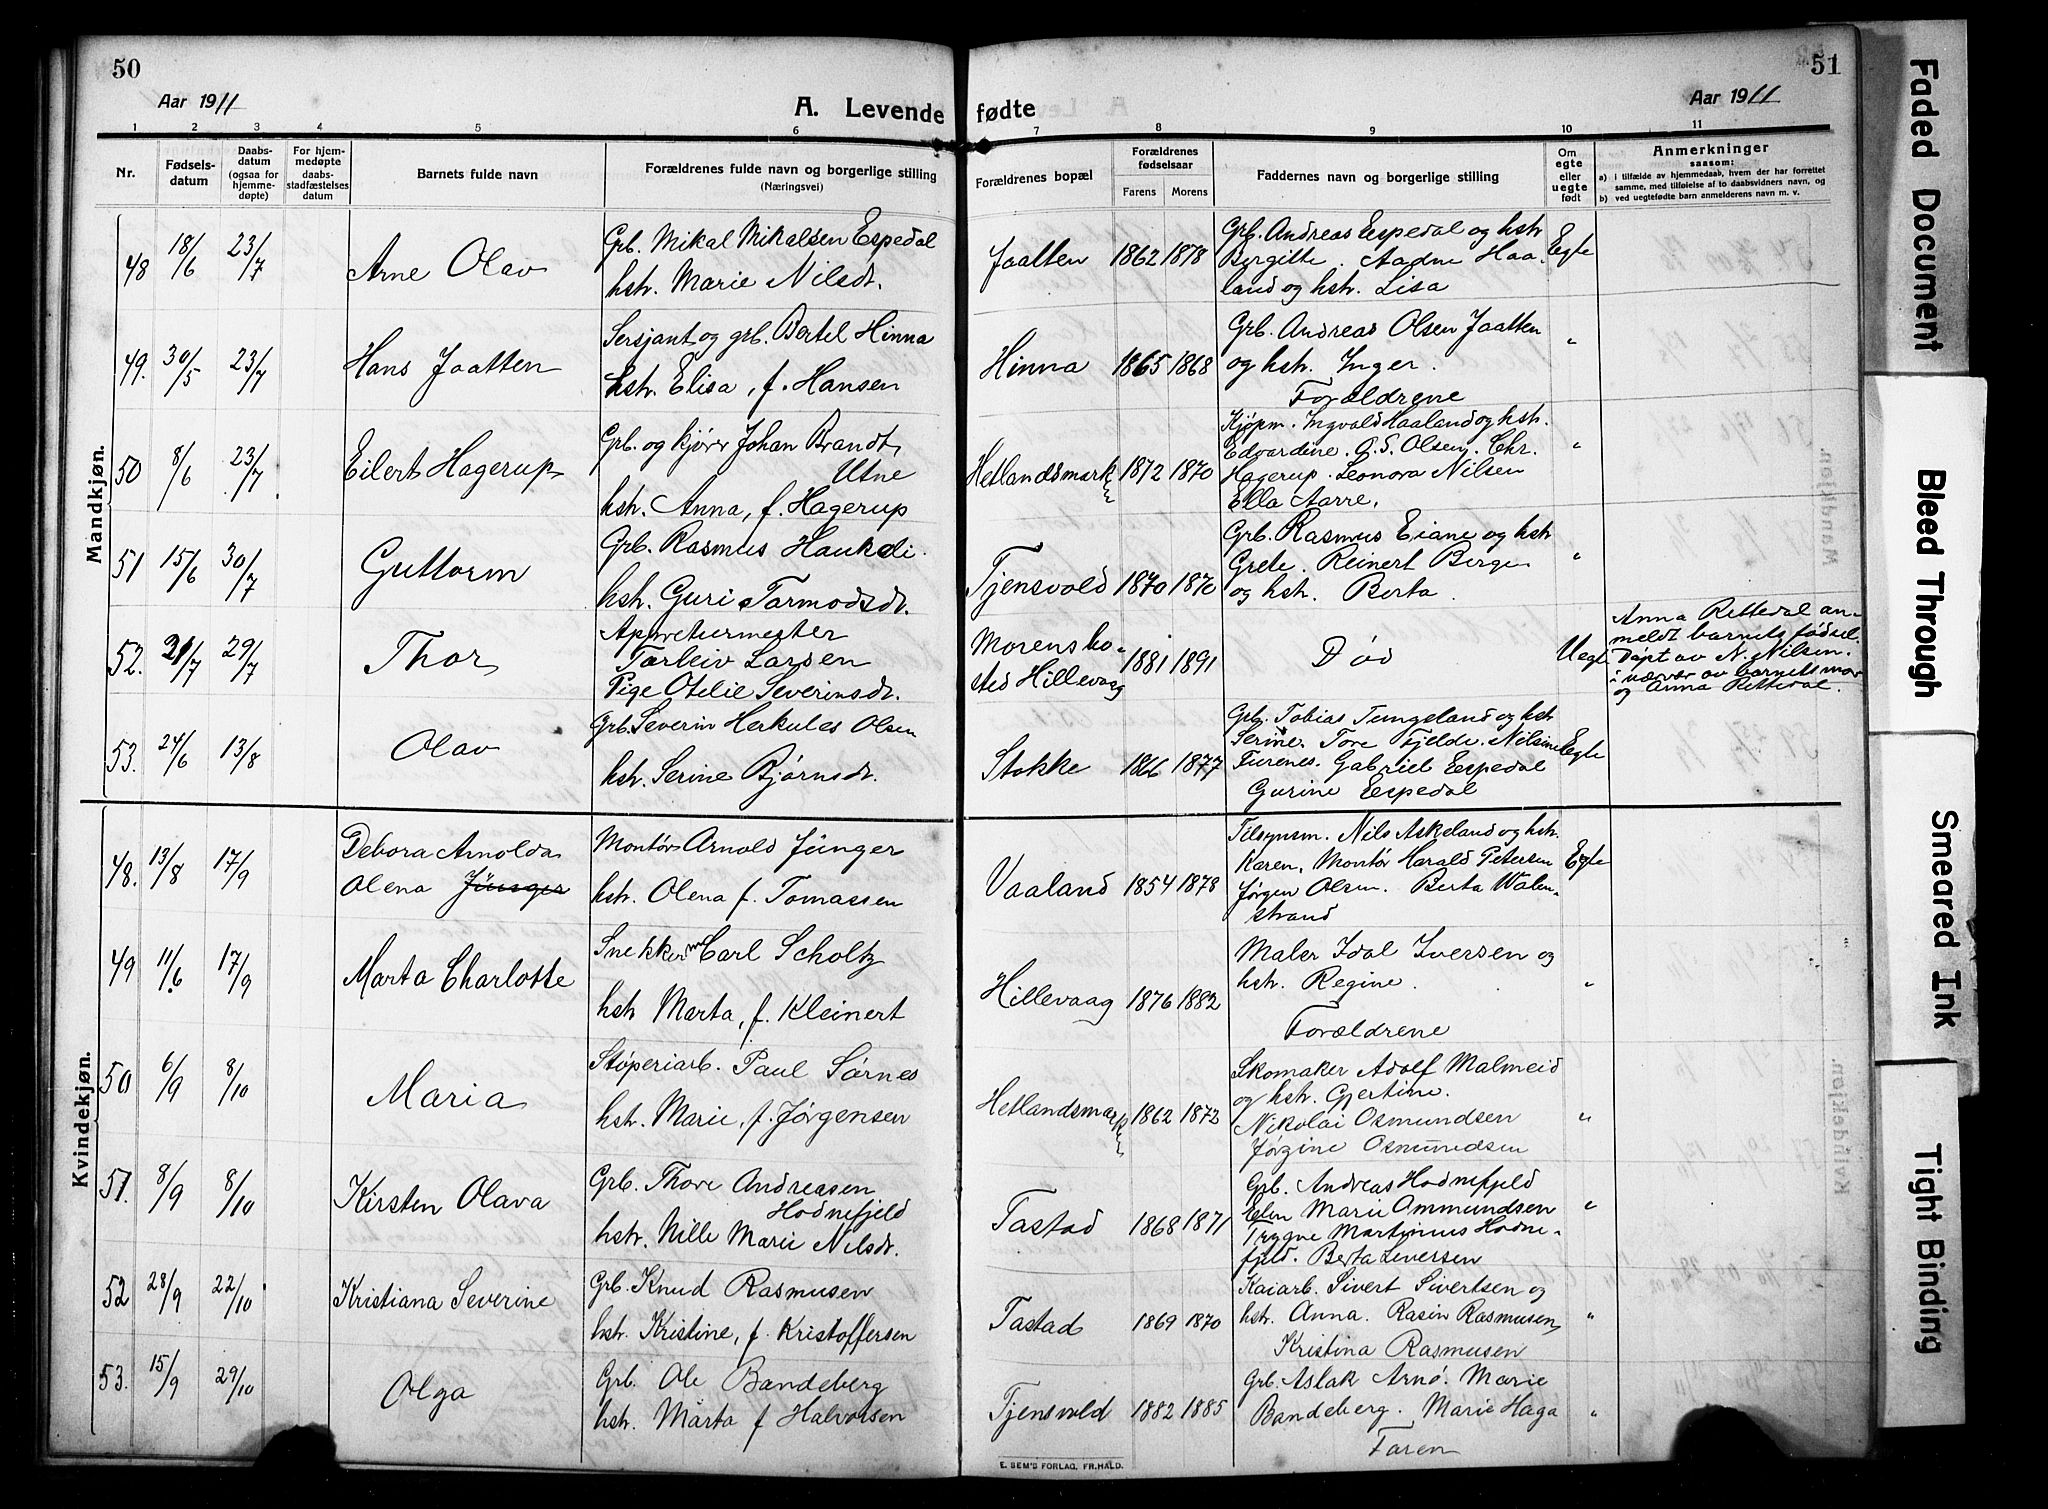 50
Aar 1911
A. Levende
1 2 3 4 5 6
Nr.
Fødsels-
datum
Daabs-
datum
(ogsaa for
hjemme-
døpte)
For hjem-
medøpte
daabs-
stadfæstelses
datum
Barnets fulde navn
Forældrenes fulde navn og borgerlige stilling
(Næringsvei)
Mandkjøn.
48 18/6 23/7 Arne Olav
Grb. Mikal Mikalsen Espedal
hstr. Marie Nilsdt.
49. 30/5 23/7 Hans Jaatten
Sersjant og grb. Bertel Hinna
hstr. Elisa, f. Hansen
50 8/6 23/7 Eilert Hagerup
Grb. og kjører Johan Brandt
Utne
hstr. Anna, f. Hagerup
51 15/6 30/7 Guttorm
Grb. Rasmus Haukeli
hstr. Guri Tormodsdt.
52. 21/7 29/7 Thor
Appreturmester
Torleiv Larsen
Pige Otelie Severinsdt.
53. 24/6 13/8 Olav
Grb. Severin Herkules Olsen
hstr. Serine Bjørnsdt.
Kvindekjøn.
48. 13/8 17/9 Debora Arnolda
Olena Jünger
Montør Arnold Jünger
hstr. Olena f. Tomassen
49 11/6 17/9 Marta Charlotte
Snekkerm Carl Scholtz
hstr Marta, f. Kleinert
50 6/9 8/10 Maria
Støperiarb. Paul Sørnes
hstr. Marie, f. Jørgensen
51. 8/9 8/10 Kirsten Olava
Grb. Thore Andreasen
Hodnefjeld
hstr. Nille Marie Nilsdt.
52 28/9 22/10 Kristiana Severine
Grb. Knud Rasmusen
hstr. Kristine, f. Kristoffersen
53. 15/9 29/10 Olga
Grb. Ole Bandeberg
hstr. Marta f Halvorsen
51
Aar 1911
fødte
7 8 9 10 11
Forældrenes bopæl
Forældrenes
fødselsaar
Farens Morens
Faddernes navn og borgerlige stilling
Om
egte
eller
uegte
født
Anmerkninger
saasom:
a) i tilfælde av hjemmedaab, hvem der har forrettet
samme, med tilføielse af to daabsvidners navn, og
b) ved uegtefødte barn anmelderens navn m. v.
Jaatten 1862 1878
Grb. Andreas Espedal og hstr
Bergitte. Aadne Haa-
land og hstr. Lisa
Egte
Hinna 1865 1868
Grb. Andreas Olsen Jaatten
og hstr. Inger.
Forældrene
"
Hetlandsmark 1872 1870
Kjøpm. Ingvald Haaland og hstr.
Edvardine. O. S. Olsen. Chr.
Hagerup. Leonora Nilsen
Ella Aarre.
"
Tjensvold 1870 1870
Grb. Rasmus Eiane og hstr
Grete. Reinert Berge
og hstr. Berta.
"
Morens bo-
sted Hillevaag 1881 1891
Død
Uegte
Anna Rettedal an-
meldt barnets fødsel.
Døpt av N. Nilsen.
i nærvær av barnets mor
og Anna Rettedal.
Stokke 1866 1877
Grb. Tobias Tungeland og hstr
Serine. Tore Fjelde. Nilsine
Furenes. Gabriel Espedal
Gurine Espedal
Egte
Vaaland 1854 1878
Tilsynsm. Nils Askeland og hstr.
Karen, Montør Harald Petersen
Jørgen Olsen. Berta Walen-
strand
Egte
Hillevaag 1876 1882
Maler Idal Iversen og
hstr. Regine.
Forældrene
"
Hetlandsmark 1862 1872
Skomaker Adolf Malmeid
og hstr. Gjertine.
Nikolai Osmundsen
Jørgine Osmundsen
"
Tastad 1868 1871
Grb. Andreas Hodnefjeld
Elen Marie Ommundsen
Trygve Martinius Hodne-
fjeld. Berta Iversen
"
Tastad 1869 1870
Kaiarb. Sivert Sivertsen og
hstr. Anna. Rasin Rasmusen,
Kristina Rasmusen
"
Tjensvold 1882 1885
Grb. Aslak Arnø. Marie
Bandeberg. Marie Haga
Faren
"
E. SEM'S FORLAG, FR.HALD.
Faded Document
Bleed Through
Smeared Ink
Tight Binding